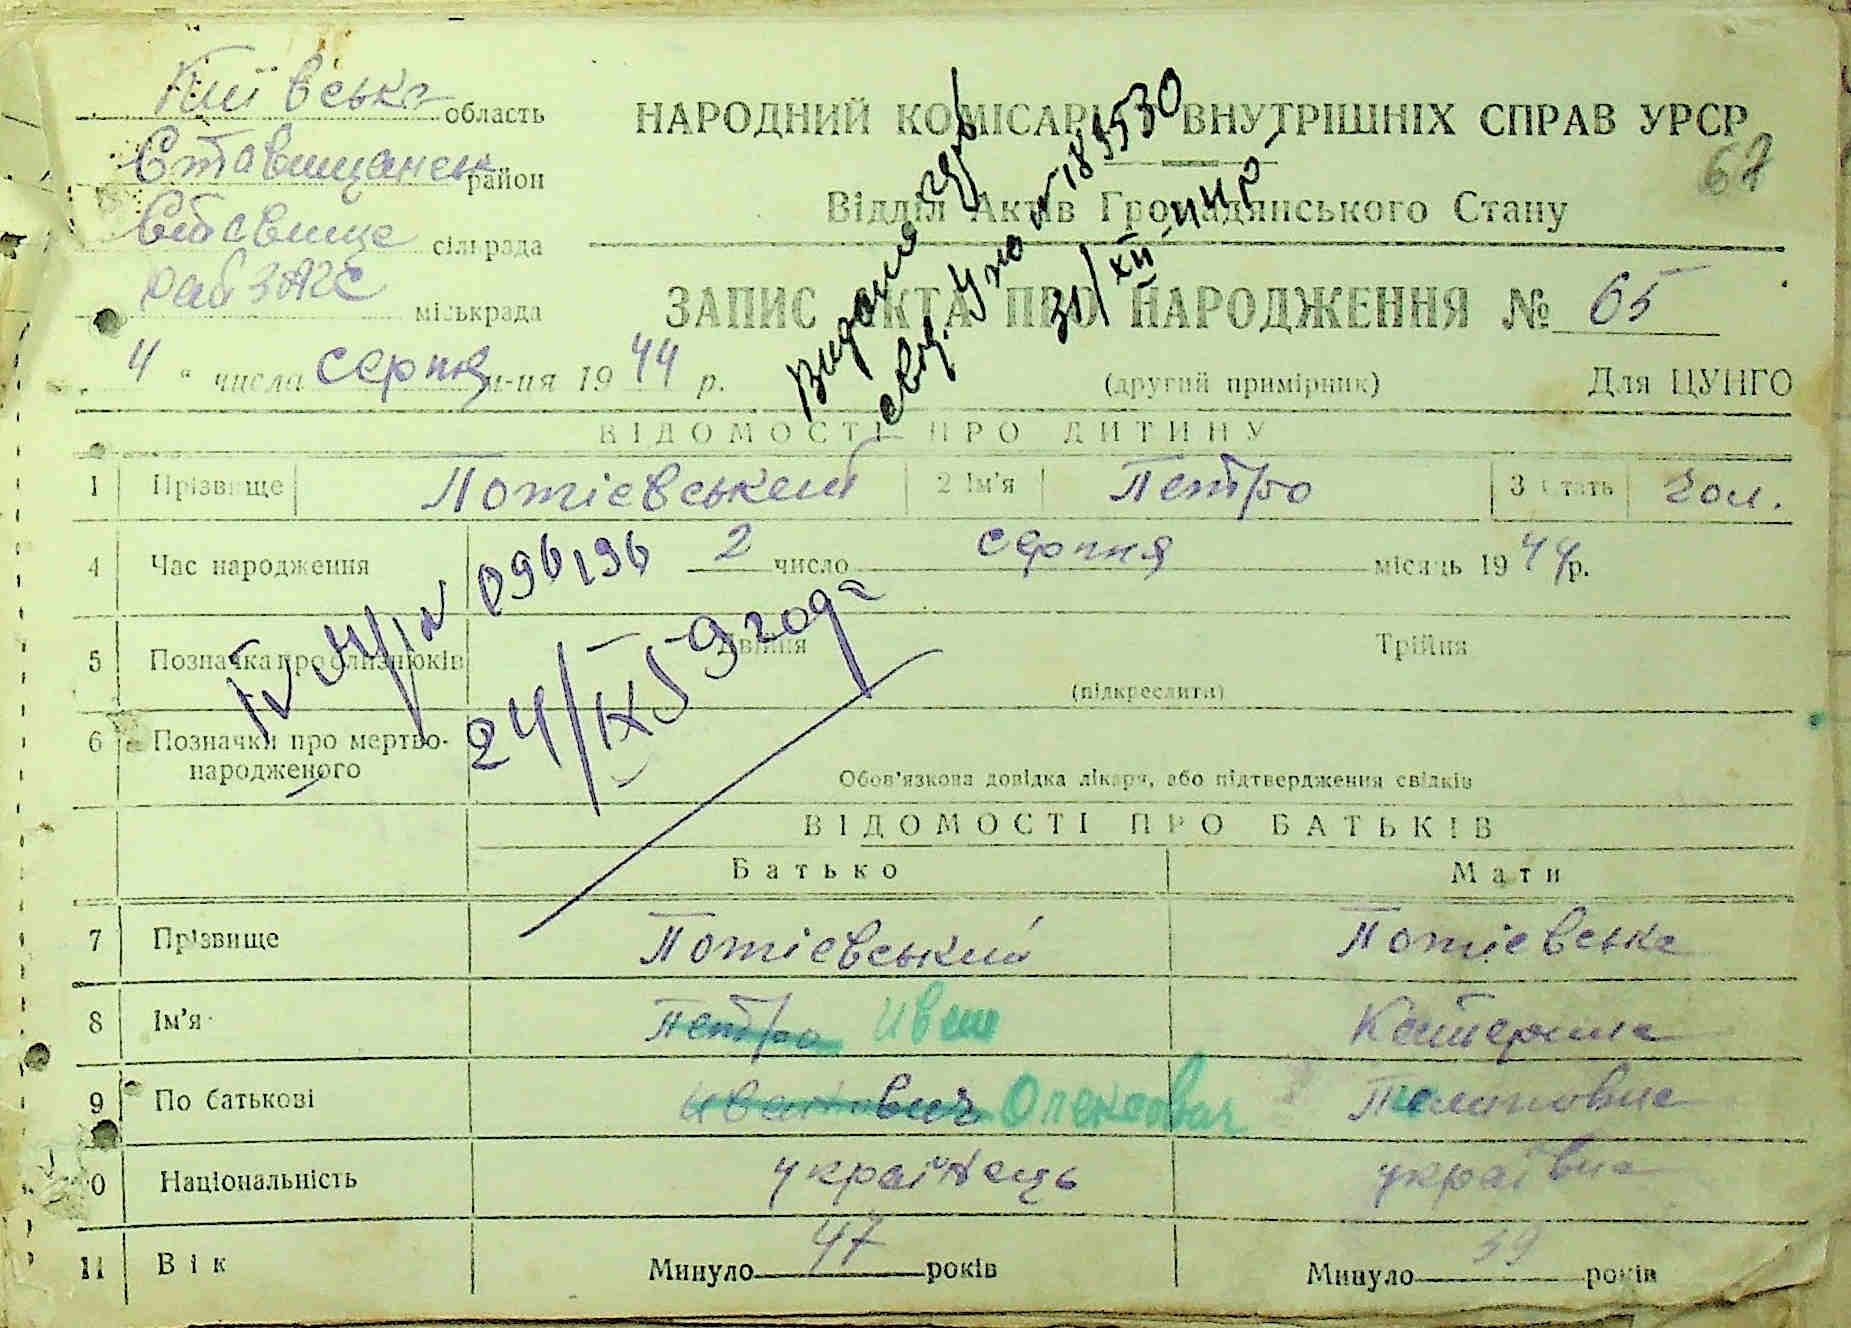 Київська область
Ставищанськ район
Ставище сільрада
раб ЗАГС міськрада
НАРОДНИЙ КОМІСАРІ ВНУТРІШНІХ СПРАВ УРСР
67
Відділ Актів Громадянського Стану
ЗАПИС АКТА ПРО НАРОДЖЕННЯ № 65
4 " числа серпня м-ця 19 44 р.
(другий примірник)
Для ЦУНГО
Видання
свід. № 183530
31/XII-44 р.
ВІДОМОСТІ ПРО ДИТИНУ
1 Прізвище Потієвський 2 Ім'я Петро 3 Стать чол.
4 Час народження 2 число серпня місяць 19 44 р.
IV № 096196
24/IX 59 года
5 Позначка про близнюків Двійня Трійня
(підкреслити)
6 Позначки про мертво-
народженого
Обов'язкова довідка лікаря, або підтвердження свідків
ВІДОМОСТІ ПРО БАТЬКІВ
Батько Мати
7 Прізвище Потієвський Потієвська
8 Ім'я Петро Иван Катерина
9 По батькові Иванович
0 Національність українець українка
11 Вік Минуло 47 років Минуло 39 років